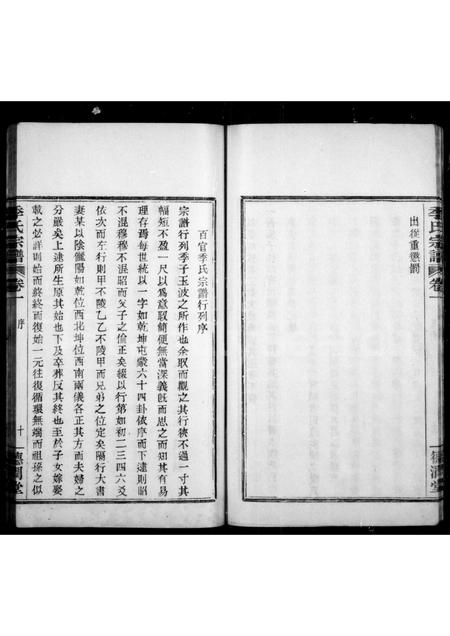 季氏宗譜
卷一
出從重懲罰
德潤堂
百官季氏宗譜行列序
宗譜行列季子玉波之所作也余取而觀之其行狹不過一寸其
幅短不盈一尺以爲意取簡便無當深義旣而思之而知其有易
理存焉每世統以一字如乾坤屯蒙六十四卦依序而下逮則昭
不混穆穆不混昭而父子之倫正矣綴以行第如初二三四六爻
依次而左行則甲不陵乙乙不陵甲而兄弟之位定矣隔行大書
妻某以陰儷陽如乾位西北坤位西南兩儀各正其方而夫婦之
分嚴矣上述所生原其始也下及卒葬反其終也至於子女嫁娶
載之必詳則始而終終而復始一元往復循環無端而祖孫之似
季氏宗譜
卷一
序
十
德潤堂